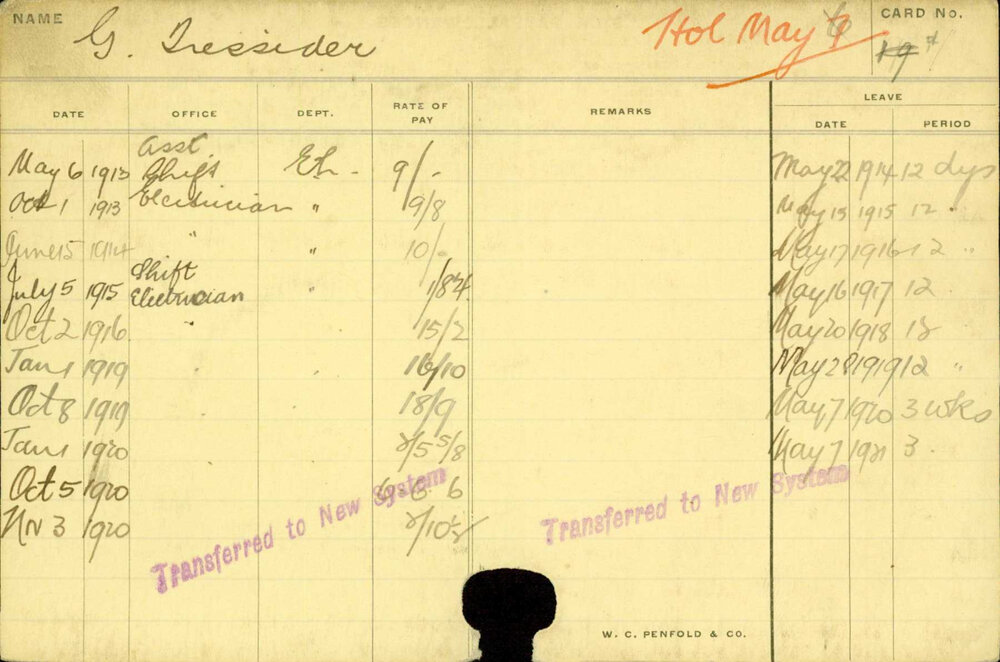 NAME G. Tressider Hol May 7 CARD No. 19
DATE OFFICE DEPT. RATE OF PAY REMARKS LEAVE
DATE PERIOD
Asst.
May 6 1913 Shift EL - 9/- May 22 1914 12 dys
Oct 1 1913 Electrician " 9/8 May 13 1915 12 "
June 15 1914 " " 10/- May 17 1916 12 "
Shift
July 5 1915 Electrician " May 16 1917 12
Oct 2 1916 " 15/2 May 20 1918 12
Jan 1 1919 16/10 May 28 1919 12 "
Oct 8 1919 18/9 May 7 1920 3 wks
Jan 1 1920 May 7 1921 3
Oct 5 1920
Nv 3 1920
Transferred to New System
Transferred to New System
W. C. PENFOLD & CO.